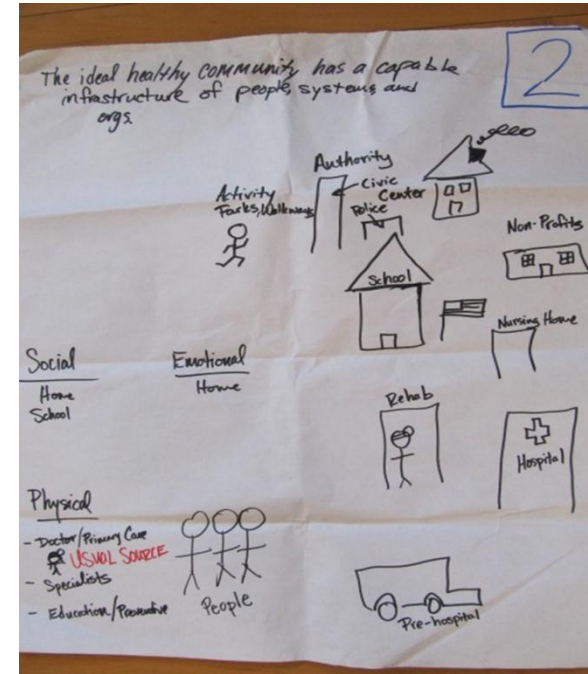 The ideal healthy community has a capable
infrastructure of people, systems and
orgs.
2
Authority
Civic
Center
Activity
Parks, Walkways
Police
Non-Profits
School
Nursing Home
Social
Home
School
Emotional
Home
Rehab
Hospital
Physical
- Doctor/Primary Care
USUAL SOURCE
- Specialists
- Education/Preventive
People
Pre-hospital